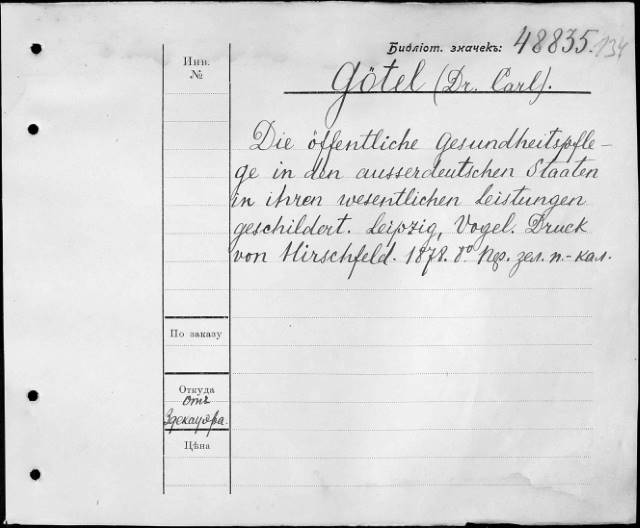 Библіот. значекъ: 48835. 134
Инв.
№
Götel (Dr. Carl).
Die öffentliche Gesundheitspfle-
ge in den ausserdeutschen Staaten
in ihren wesentlichen Leistungen
geschildert. Leipzig, Vogel. Druck
von Hirschfeld. 1878. 8º Пер. зел. п.-кал.
По заказу
Откуда
отъ
Здекауера.
Цѣна